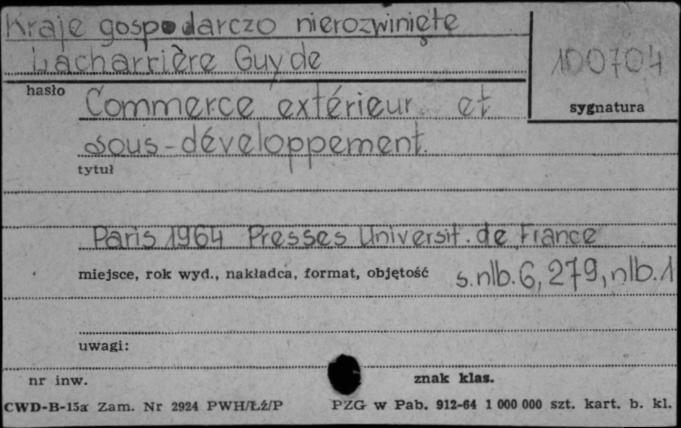 Kraje gospodarczo nierozwinięte
Lacharrière Guy de
100704
hasło
sygnatura
Commerce extérieur et
sous-développement.
tytuł
Paris 1964 Presses Universit. de France
miejsce, rok wyd., nakładca, format, objętość
s.nlb. 6, 279, nlb. 1
uwagi:
nr inw.
znak klas.
CWD-B-15a Zam. Nr 2924 PWH/Łż/P PZG w Pab. 912-64 1 000 000 szt. kart. b. kl.